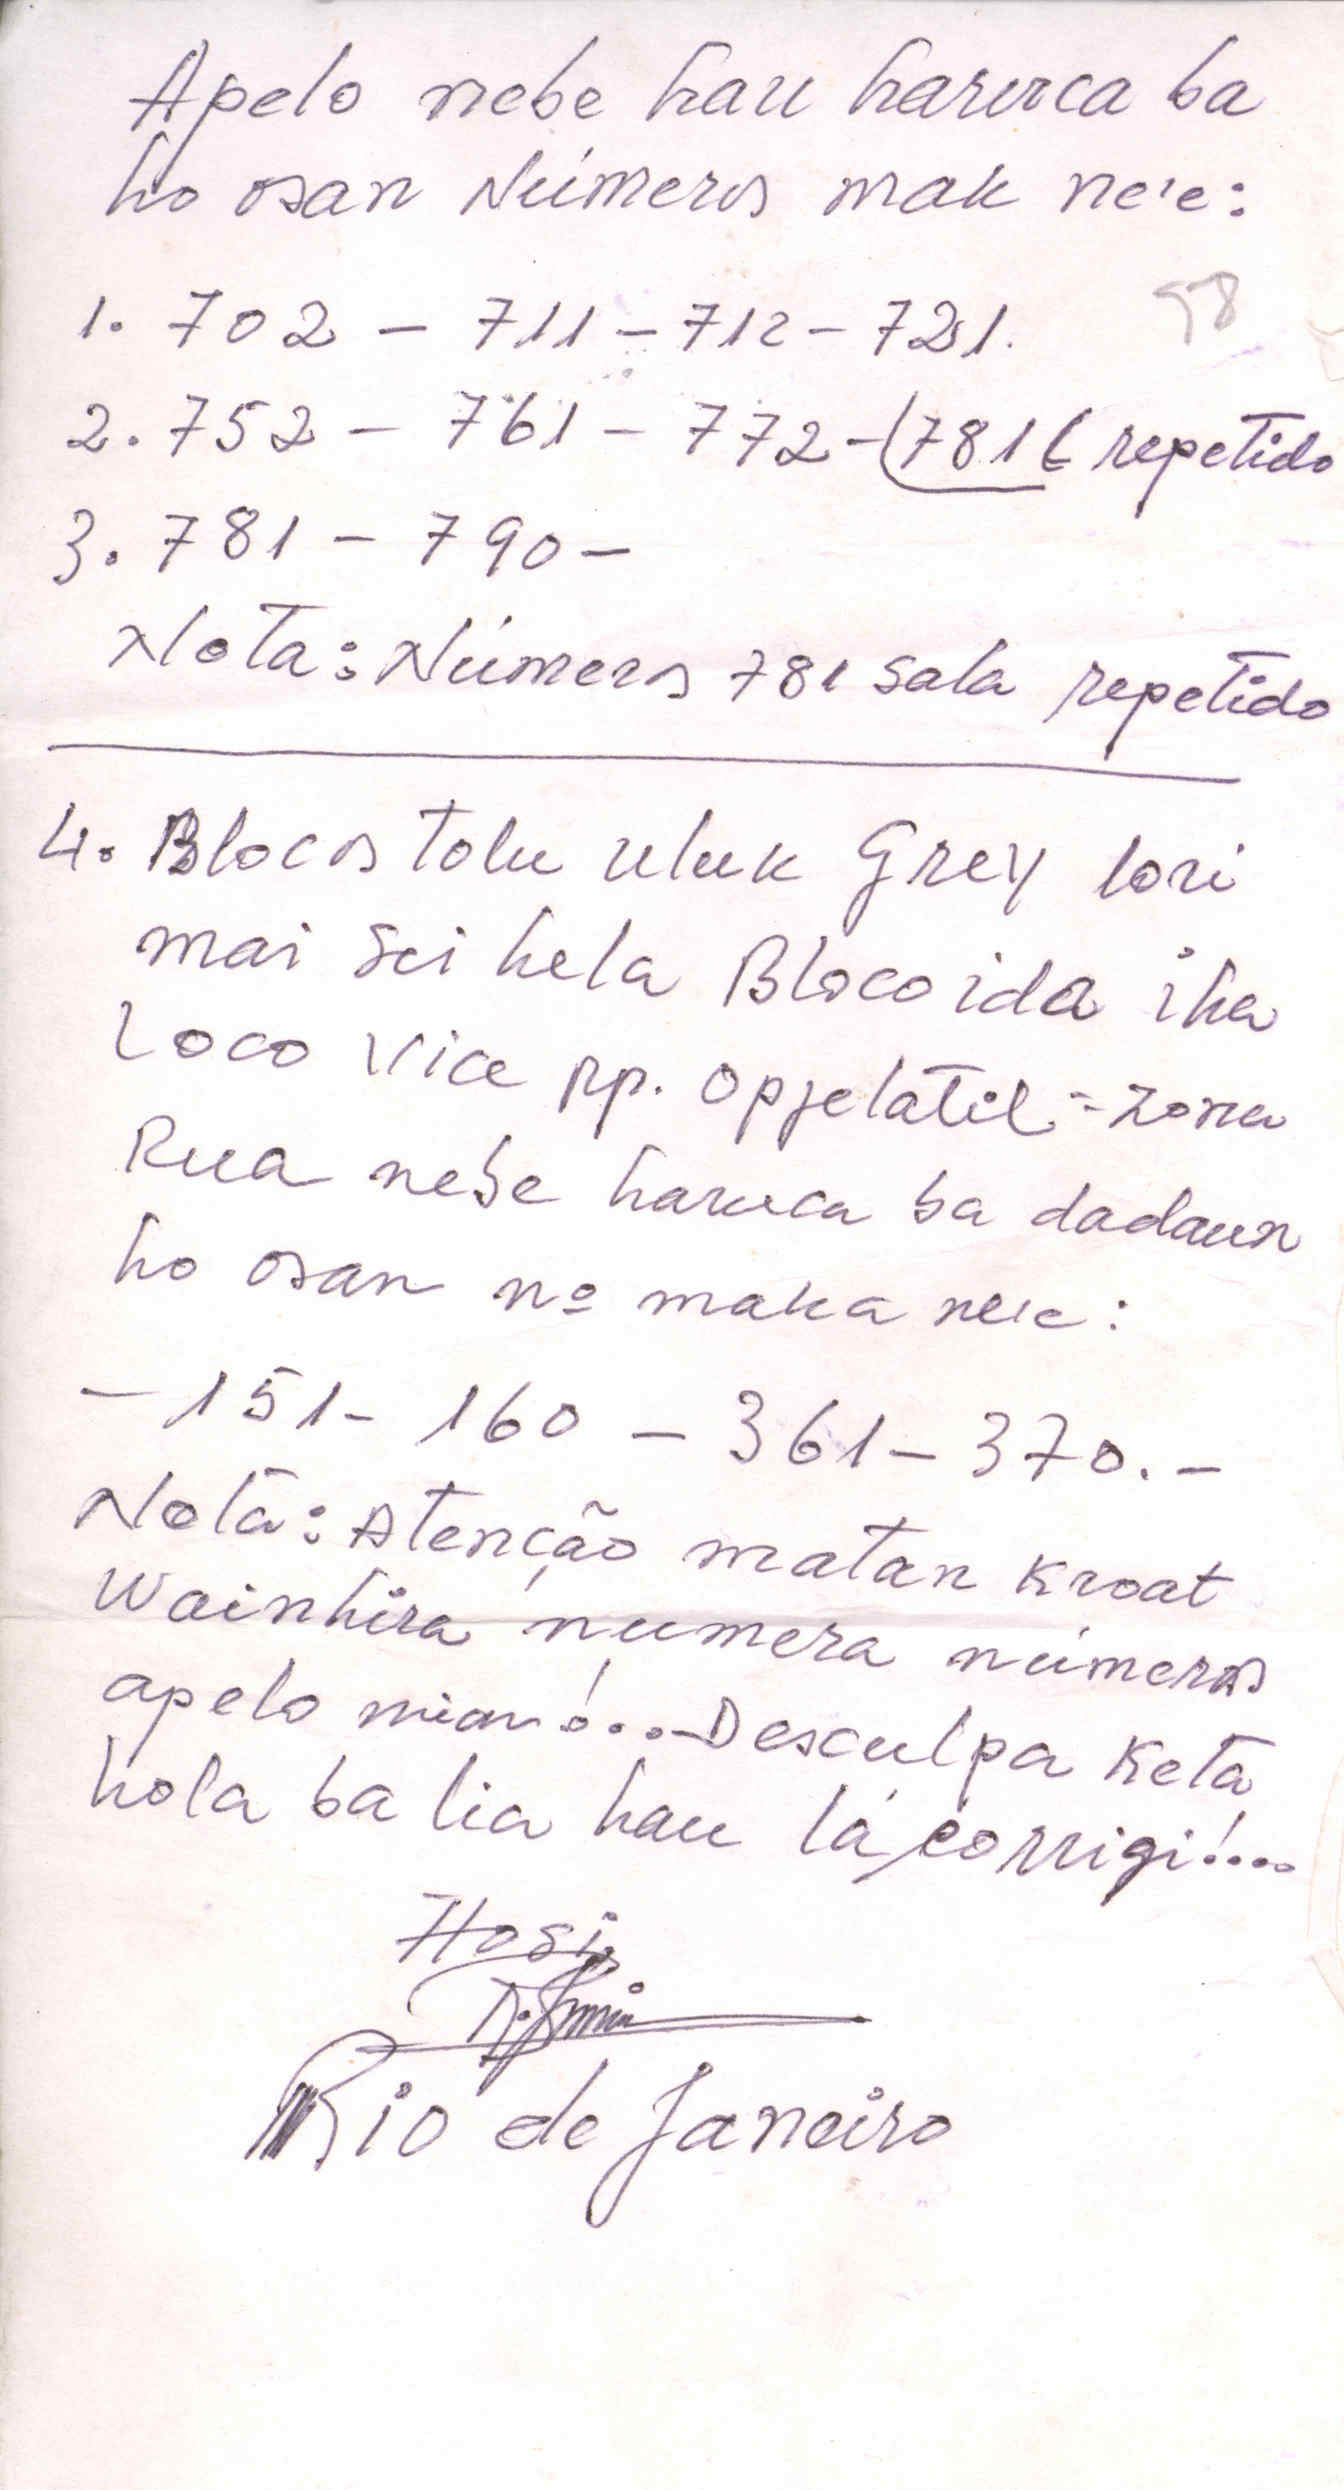 Apelo nebe hau haruca ba
ho osan Números mak ne'e:
58
1. 702 - 711 - 712 - 721.
2. 752 - 761 - 772 - (781 ( repetido
3. 781 - 790 -
Nota: Números 781 sala repetido
4. Blocos tolu uluk Grey lori
mai sei hela Bloco ida iha
Loco Vice Rp. Opjelatil - Zona
Rua nebe haruca ba dadaun
ho osan no maka ne'e:
- 151 - 160 - 361 - 370. -
Nota: Atenção matan kroat
Wainhira numera números
apelo nian!... Desculpa Keta
hola ba lia hau lá corrigi!....
Hosi
Rio de Janeiro